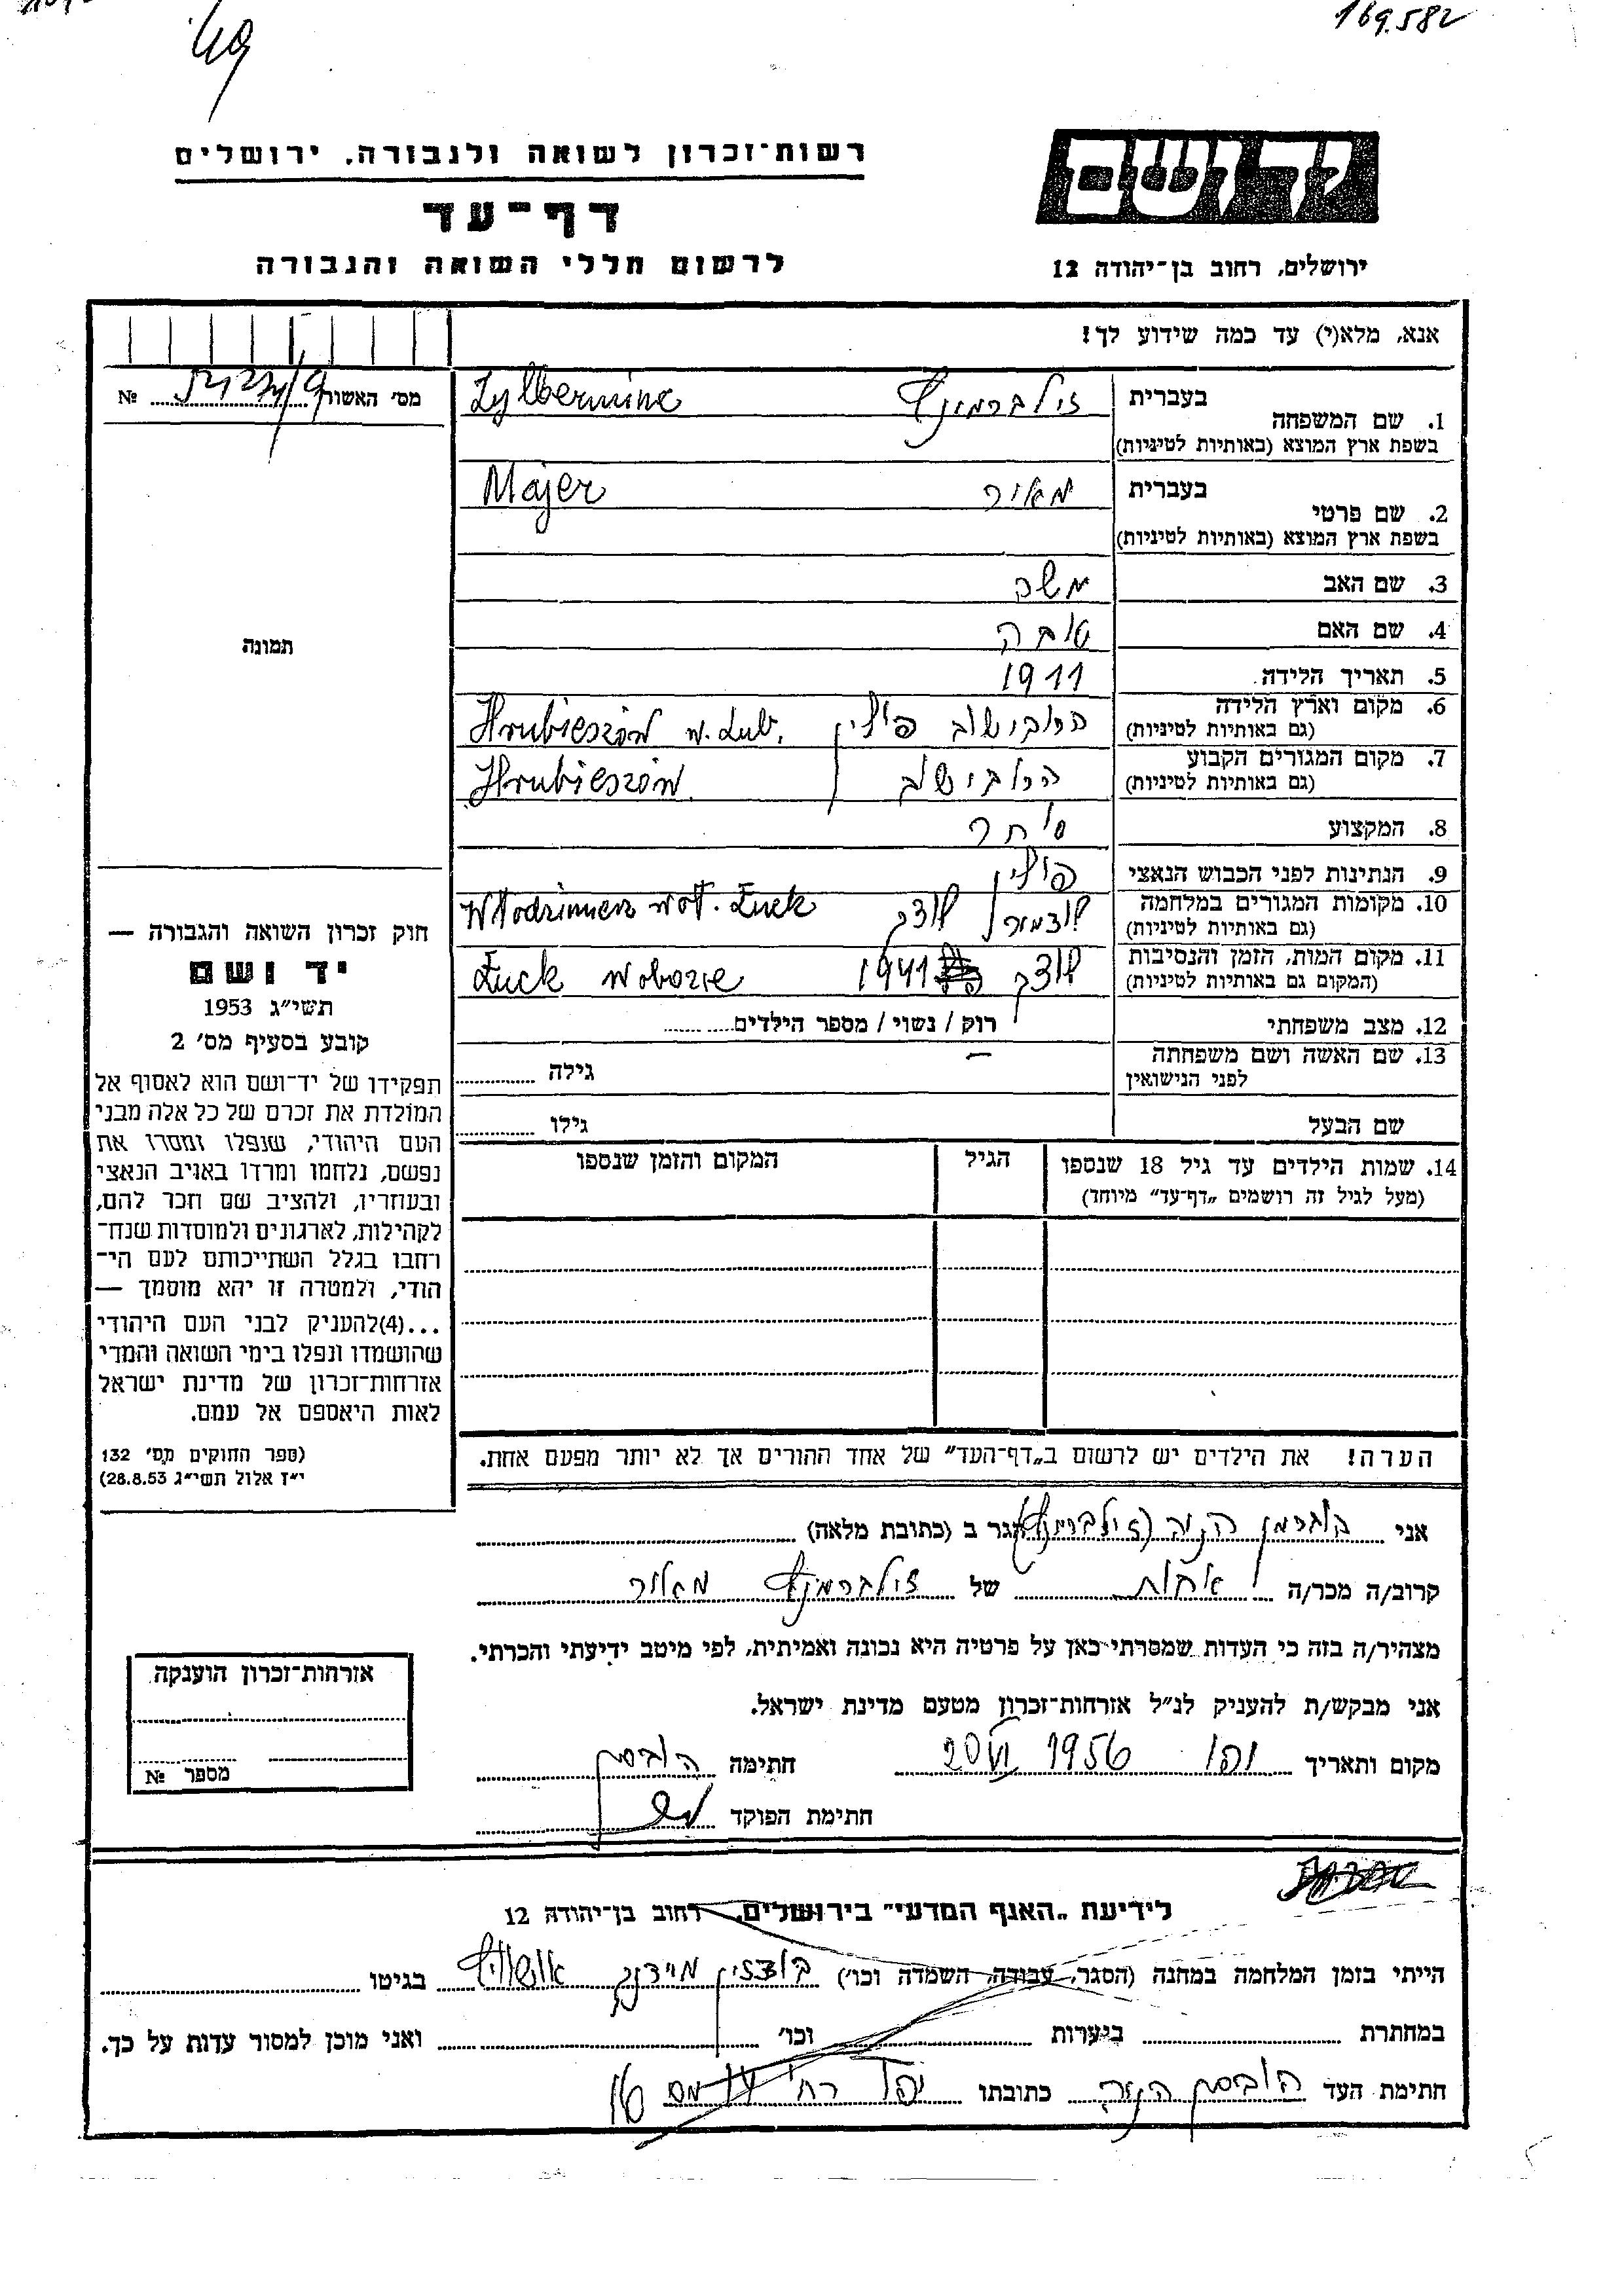 169.582
49
יד ושם
רשות־זכרון לשואה ולגבורה, ירושלים
דף־עד
ירושלים, רחוב בן־יהודה 12
לרשום חללי השואה והגבורה
אנא, מלא(י) עד כמה שידוע לך!
מס׳ האשור № 
1. שם המשפחה
בעברית זילברמינץ Zylbermine
בשפת ארץ המוצא (באותיות לטיניות)
2. שם פרטי
בעברית מאיר Majer
בשפת ארץ המוצא (באותיות לטיניות)
3. שם האב משה
4. שם האם טובה
תמונה
5. תאריך הלידה 1911
6. מקום וארץ הלידה הרובישוב פולין Hrubieszów w. Lub.
(גם באותיות לטיניות)
7. מקום המגורים הקבוע הרובישוב Hrubieszów
(גם באותיות לטיניות)
8. המקצוע סוחר
9. הנתינות לפני הכבוש הנאצי פולין
10. מקומות המגורים במלחמה לוצק Włodzimierz woł. Łuck
(גם באותיות לטיניות)
11. מקום המות, הזמן והנסיבות לוצק 1941 Łuck w obozie
(המקום גם באותיות לטיניות)
12. מצב משפחתי רוק / נשוי / מספר הילדים
13. שם האשה ושם משפחתה גילה
לפני הנישואין
שם הבעל גילו
14. שמות הילדים עד גיל 18 שנספו הגיל המקום והזמן שנספו
(מעל לגיל זה רושמים „דף־עד״ מיוחד)
חוק זכרון השואה והגבורה —
יד ושם
תשי״ג 1953
קובע בסעיף מס׳ 2
תפקידו של יד־ושם הוא לאסוף אל
המולדת את זכרם של כל אלה מבני
העם היהודי, שנפלו ומסרו את
נפשם, נלחמו ומרדו באויב הנאצי
ובעוזריו, ולהציב שם וזכר להם,
לקהילות, לארגונים ולמוסדות שנח־
רבו בגלל השתייכותם לעם הי־
הודי, ולמטרה זו יהא מוסמך —
...(4)להעניק לבני העם היהודי
שהושמדו ונפלו בימי השואה והמרי
אזרחות־זכרון של מדינת ישראל
לאות היאספם אל עמם.
(ספר החוקים מס׳ 132
י״ז אלול תשי״ג 28.8.53)
הערה! את הילדים יש לרשום ב„דף־העד״ של אחד ההורים אך לא יותר מפעם אחת.
אני הגר ב (כתובת מלאה)
קרוב/ה מכר/ה אחות של זילברמינץ מאיר
מצהיר/ה בזה כי העדות שמסרתי כאן על פרטיה היא נכונה ואמיתית, לפי מיטב ידיעתי והכרתי.
אני מבקש/ת להעניק לנ״ל אזרחות־זכרון מטעם מדינת ישראל.
מקום ותאריך יפו 20 VI 1956 חתימה
חתימת הפוקד
אזרחות־זכרון הוענקה
מספר №
לידיעת „האגף המדעי״ בירושלים, רחוב בן־יהודה 12
הייתי בזמן המלחמה במחנה (הסגר, עבודה, השמדה וכו׳) בודזין מיידנק אושוויץ בגיטו
במחתרת ביערות וכו׳ ואני מוכן למסור עדות על כך.
חתימת העד כתובתו יפו רח׳ 16